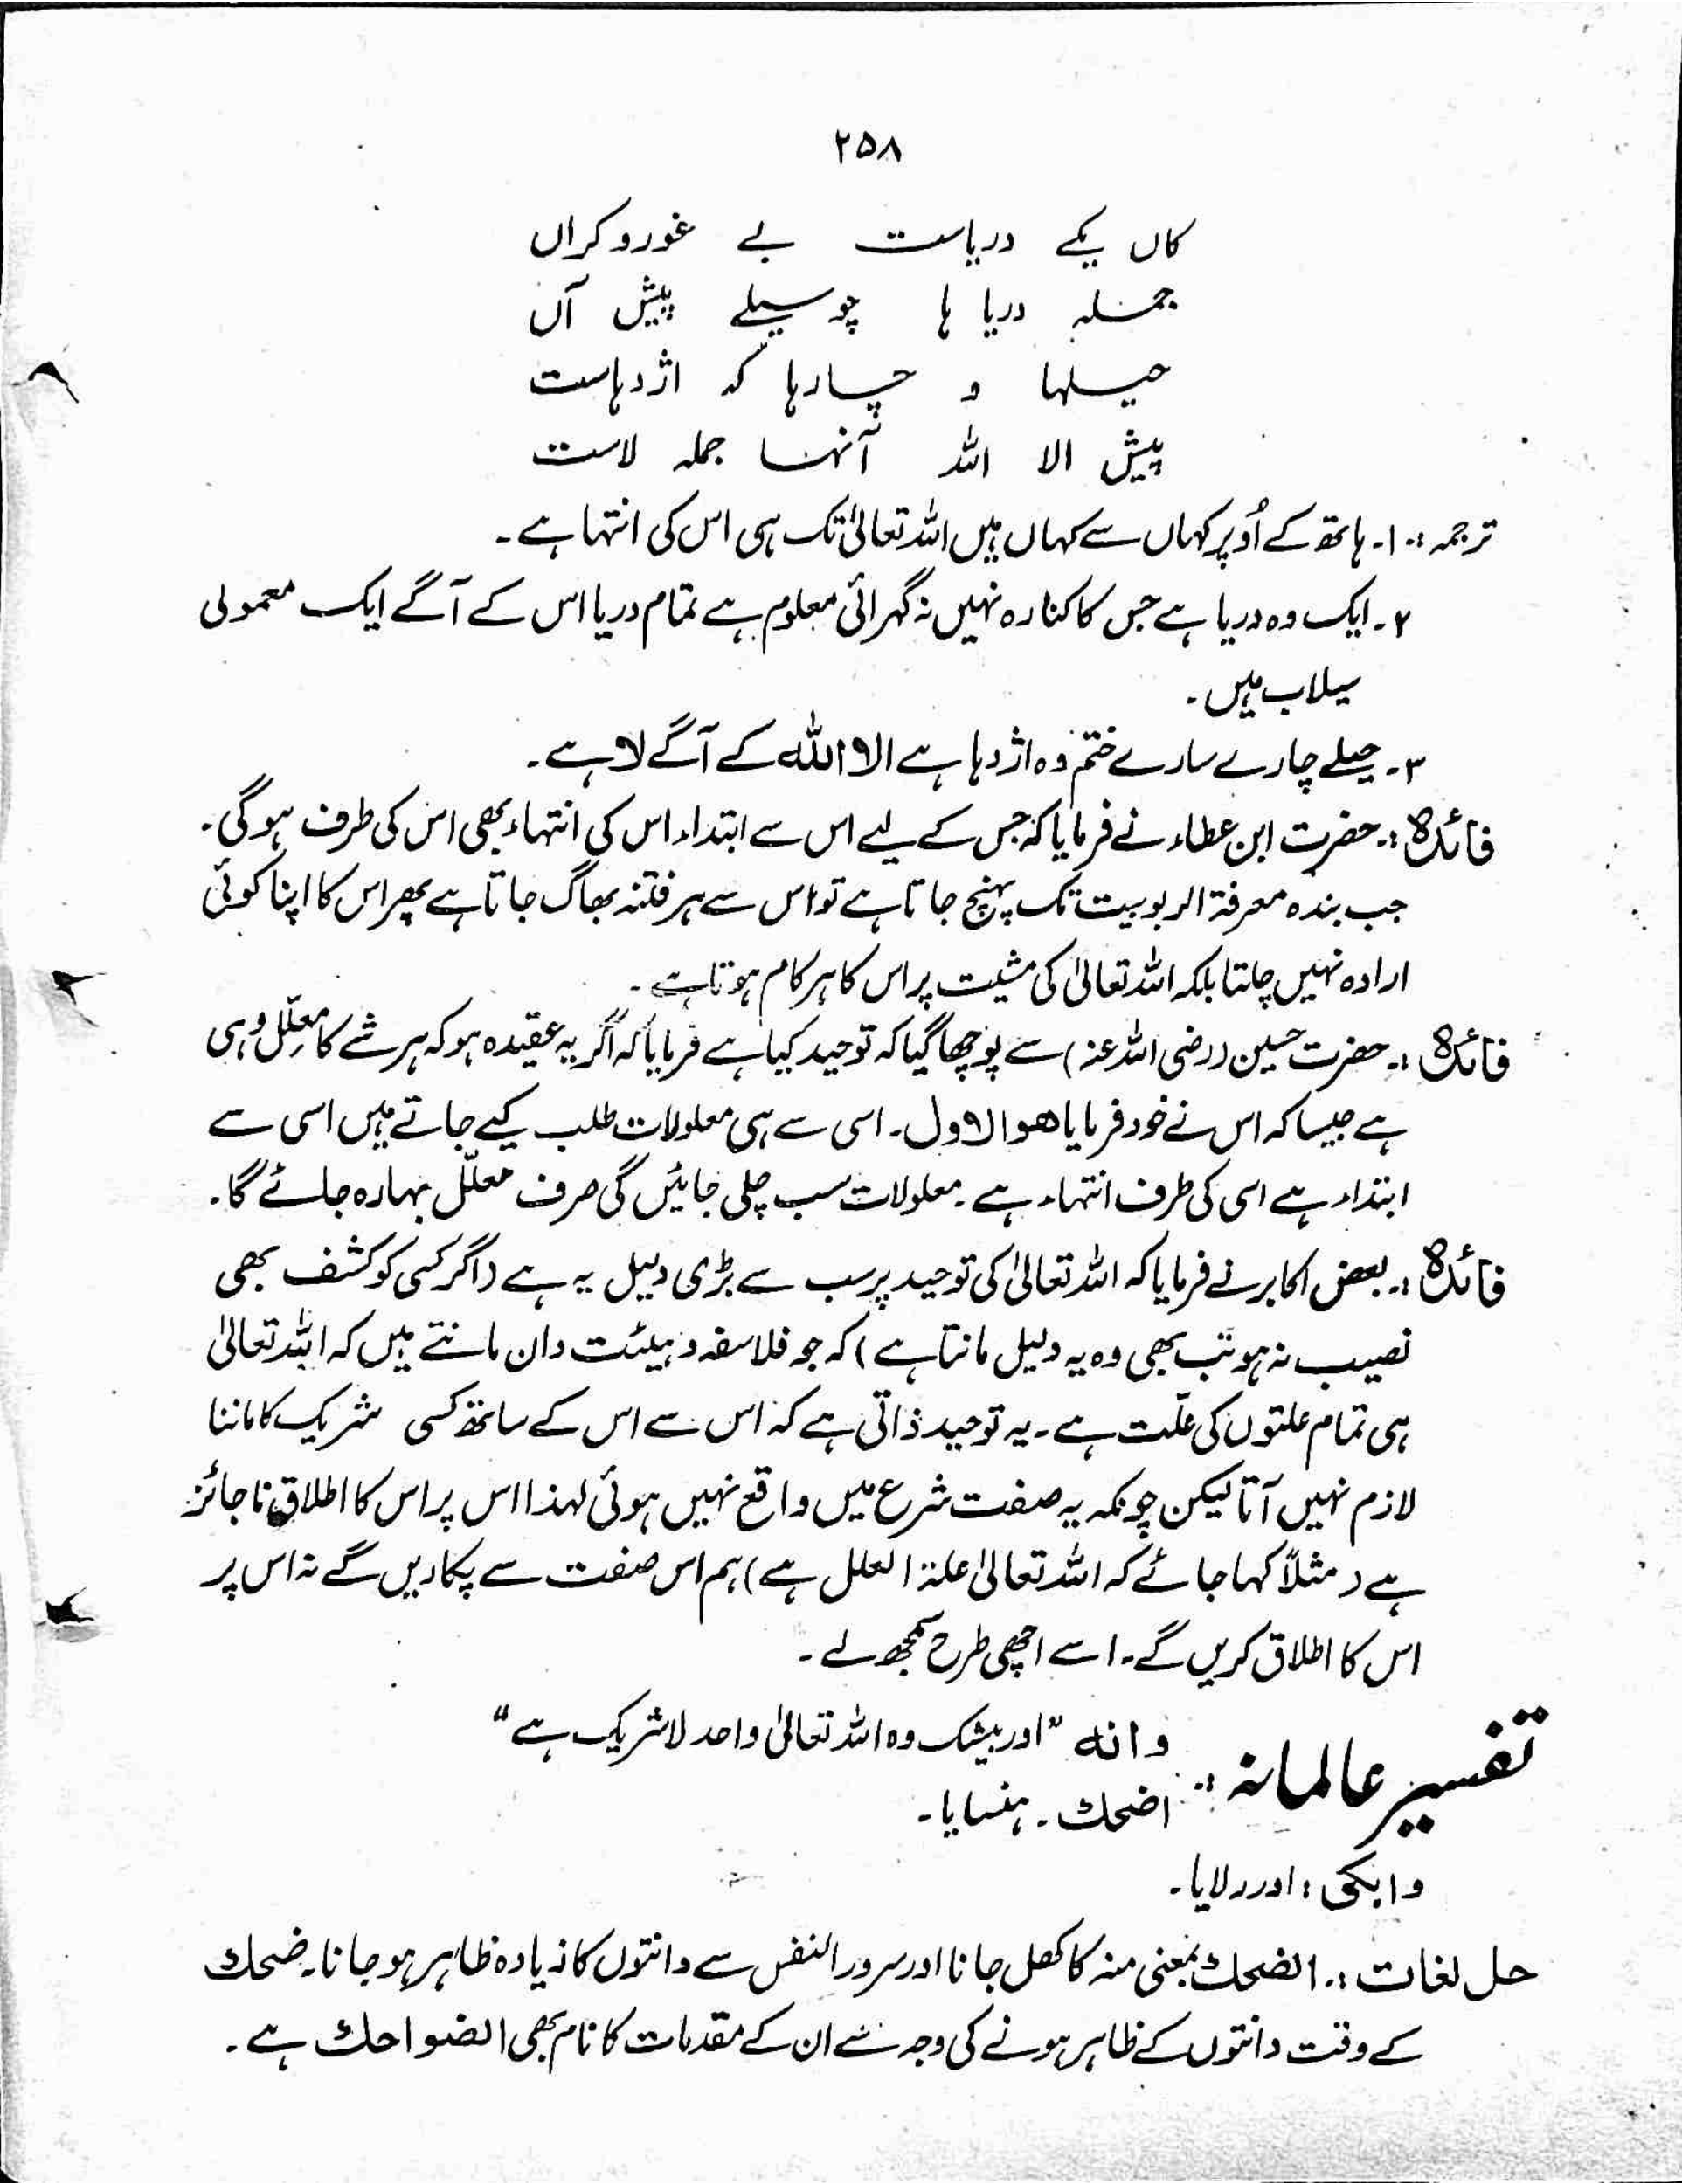 ۲۵۸
کاں یکے دریاست بے غور و کراں
جملہ دریا ہا چو سیلے پیش آں
حیلہا و چارہا کہ اژدہاست
پیش الا اللہ آنہا جملہ لاست
ترجمہ :۔ ۱۔ ہاتھ کے اُوپر کہاں سے کہاں ہیں اللہ تعالیٰ تک ہی اس کی انتہا ہے۔
۲۔ ایک وہ دریا ہے جس کا کنارہ نہیں نہ گہرائی معلوم ہے تمام دریا اس کے آگے ایک معمولی
سیلاب ہیں۔
۳۔ حیلے چارے سارے ختم وہ اژدہا ہے الا اللہ کے آگے لا ہے۔
فائدہ :۔ حضرت ابن عطاء نے فرمایا کہ جس کے لیے اس سے ابتداء اس کی انتہاء بھی اس کی طرف ہوگی۔
جب بندہ معرفۃ الربوبیت تک پہنچ جاتا ہے تو اس سے ہر فتنہ بھاگ جاتا ہے پھر اس کا اپنا کوئی
ارادہ نہیں چلتا بلکہ اللہ تعالیٰ کی مشیت پر اس کا ہر کام ہوتا ہے۔
فائدہ :۔ حضرت حسین (رضی اللہ عنہ) سے پوچھا گیا کہ توحید کیا ہے فرمایا کہ اگر یہ عقیدہ ہو کہ ہر شے کا معلِّل وہی
ہے جیسا کہ اس نے خود فرمایا ھو الاول۔ اسی سے ہی معلولات طلب کیے جاتے ہیں اسی سے
ابتداء ہے اسی کی طرف انتہاء ہے۔ معلولات سب چلی جائیں گی صرف معلّل بہا رہ جائے گا۔
فائدہ :۔ بعض اکابر نے فرمایا کہ اللہ تعالیٰ کی توحید پر سب سے بڑی دلیل یہ ہے (اگر کسی کو کشف بھی
نصیب نہ ہو تب بھی وہ یہ دلیل مانتا ہے) کہ جو فلاسفہ و ہیئت دان مانتے ہیں کہ اللہ تعالیٰ
ہی تمام علتوں کی علّت ہے۔ یہ توحید ذاتی ہے کہ اس سے اس کے ساتھ کسی شریک کا ماننا
لازم نہیں آتا لیکن چونکہ یہ صفت شرع میں واقع نہیں ہوئی لہٰذا اس پر اس کا اطلاق ناجائز
ہے (مثلاً کہا جائے کہ اللہ تعالیٰ علۃ العلل ہے) ہم اس صفت سے پکاریں گے نہ اس پر
اس کا اطلاق کریں گے۔ اسے اچھی طرح سمجھ لے۔
تفسیر عالمانہ :۔ وانه "اور بیشک وہ اللہ تعالیٰ واحد لاشریک ہے"
اضحك۔ ہنسایا۔
وابکی : اور رلایا۔
حل لغات :۔ الضحك بمعنی منہ کا کھل جانا اور سرور النفس سے دانتوں کا زیادہ ظاہر ہو جانا۔ ضحك
کے وقت دانتوں کے ظاہر ہونے کی وجہ سے ان کے مقدمات کا نام بھی الضواحك ہے۔